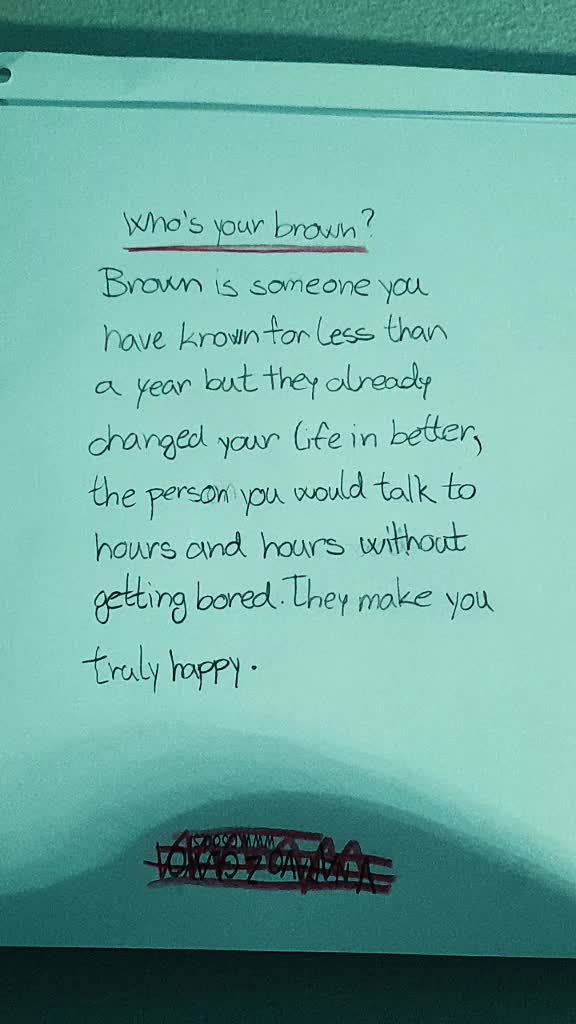 Who's your brown?
Brown is someone you
have known for less than
a year but they already
changed your life in better,
the person you would talk to
hours and hours without
getting bored. They make you
truly happy.